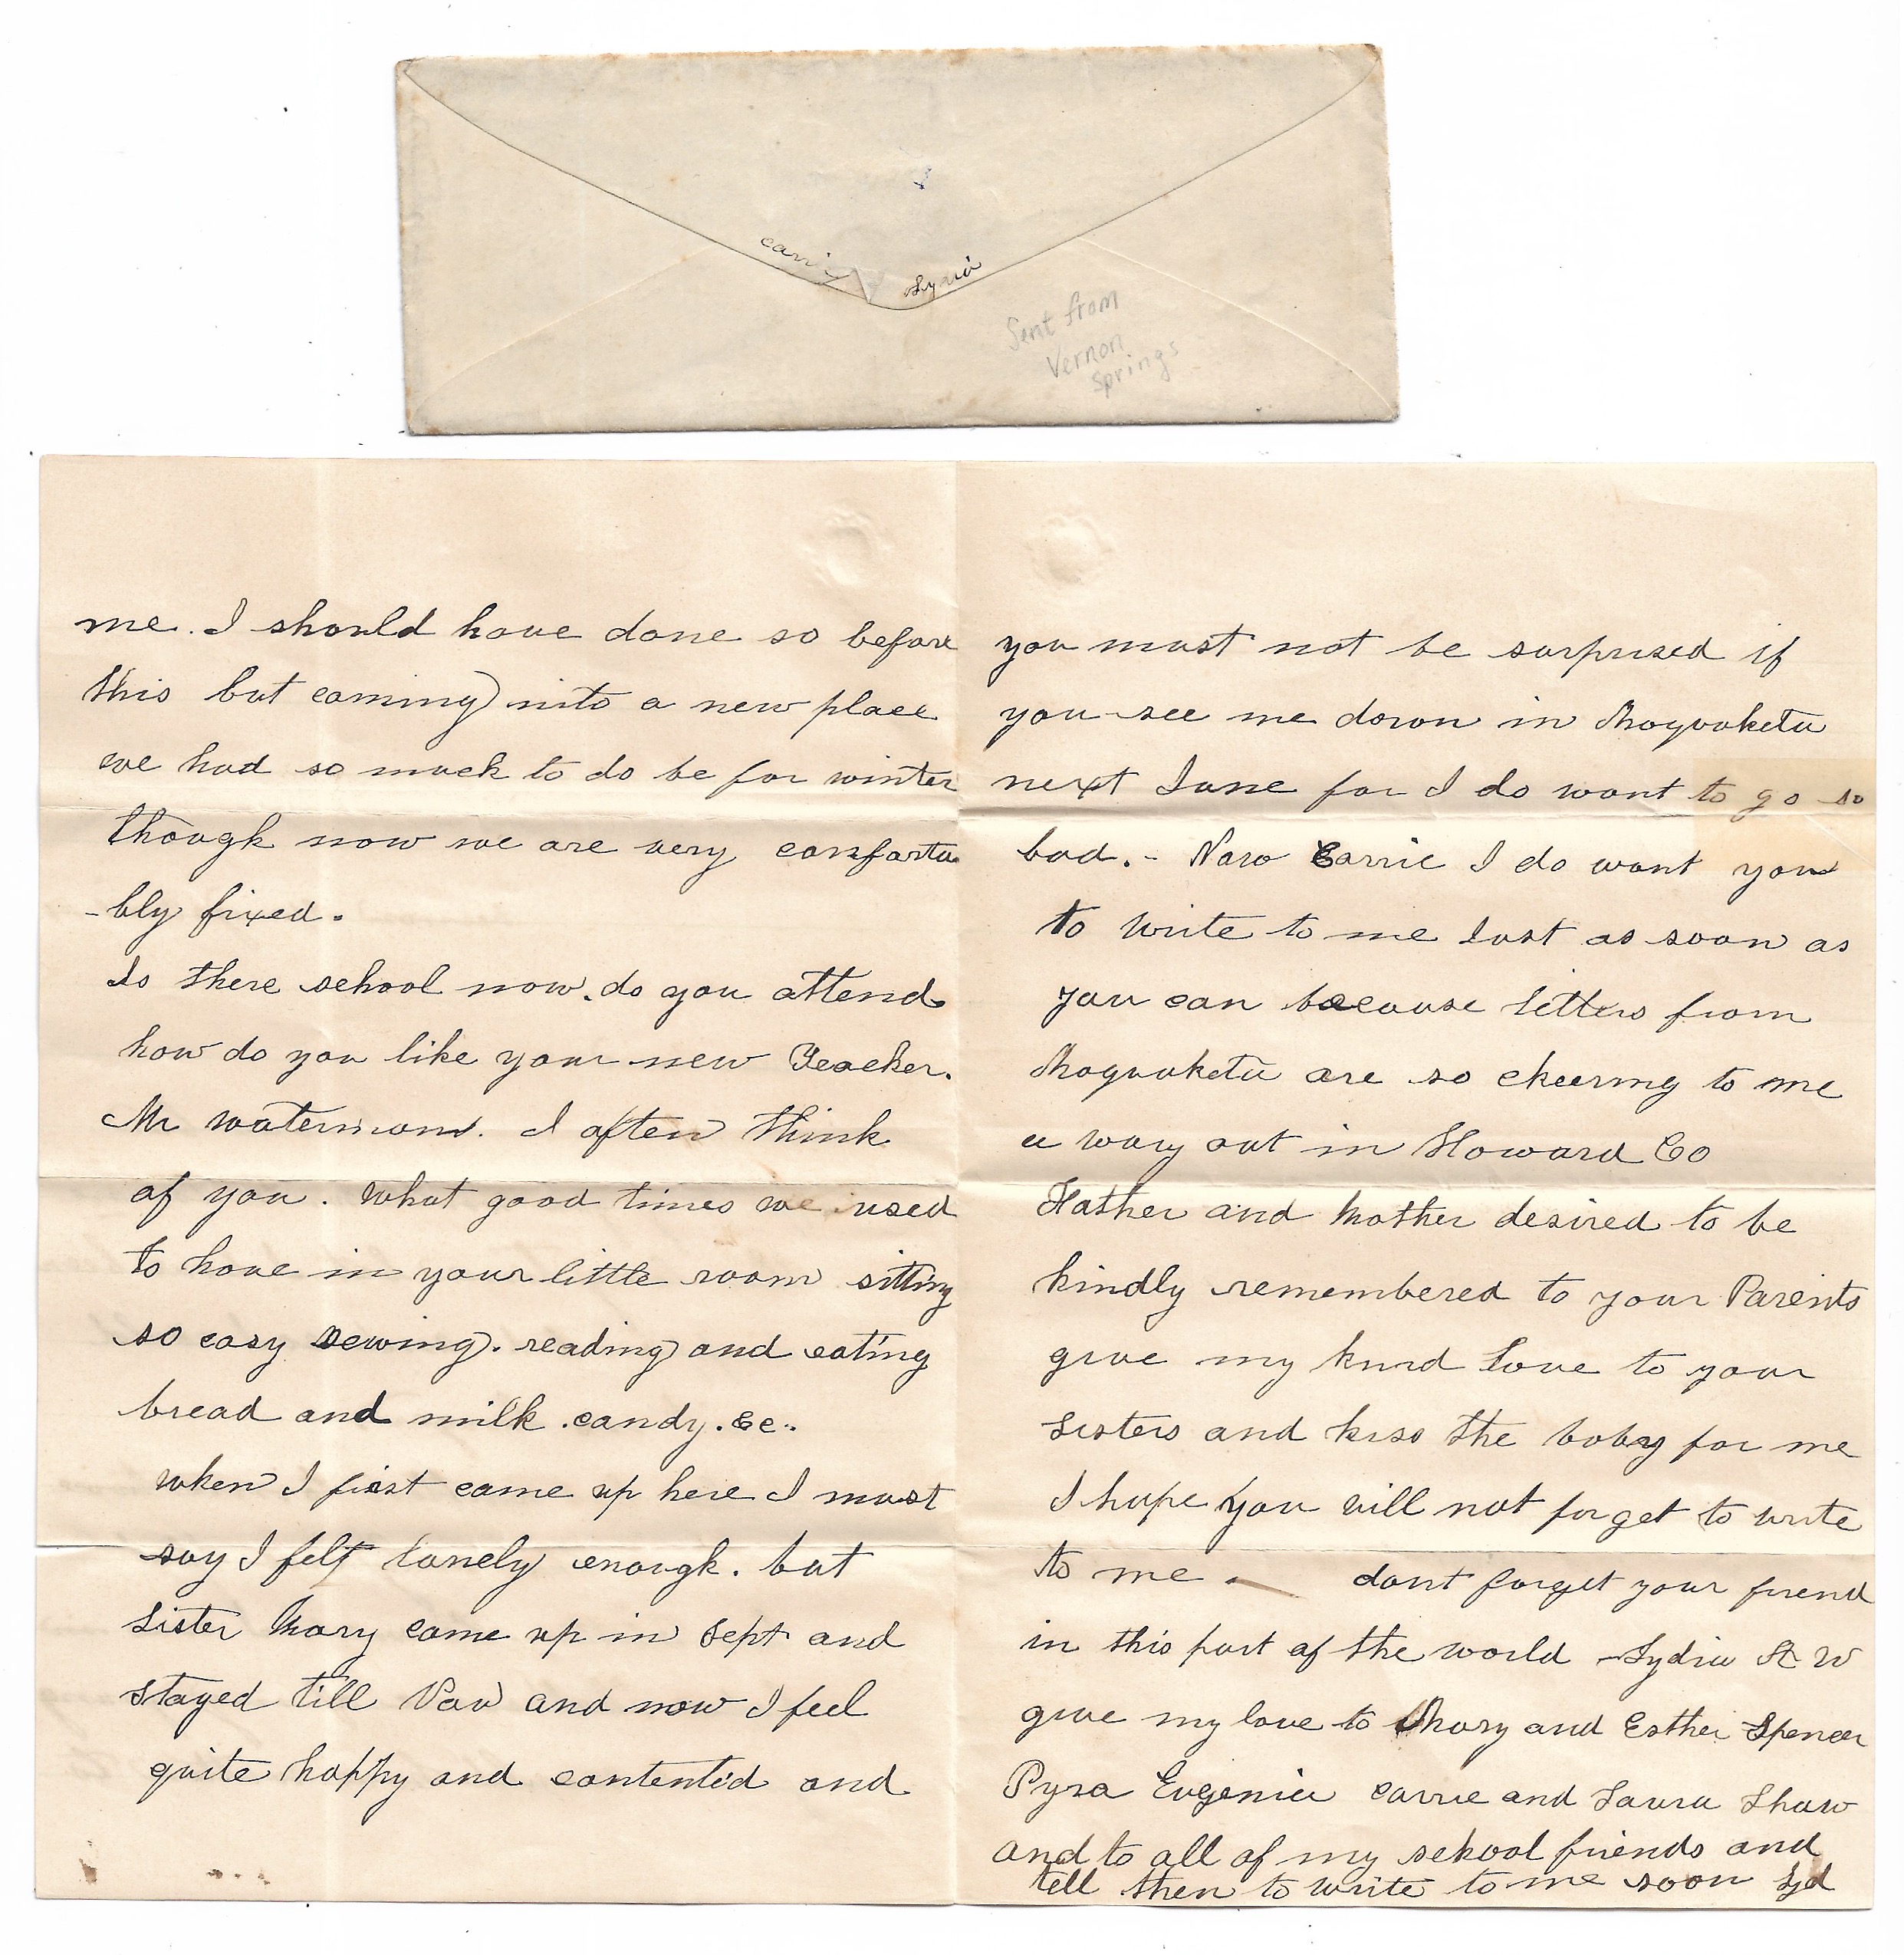 carrie
Lydia
Sent from
Vernon
Springs
me. I should have done so before
this but coming into a new place
we had so much to do be for winter
though now we are very comforta
-bly fixed.
Is there school now. do you attend
how do you like your new Teacher.
Mr watermans. I often think
of you. What good times we used
to have in your little room sitting
so easy sewing. reading and eating
bread and milk. candy. &c..
when I first came up here I must
say I felt lonely enough. but
Sister Mary came up in Sept and
stayed till Nov and now I feel
quite happy and contented and
you must not be surprised if
you see me down in Maquoketa
next June for I do want to go so
bad. - Now Carrie I do want you
to write to me Just as soon as
you can because letters from
Maquoketa are so cheering to me
a way out in Howard Co
Father and Mother desired to be
kindly remembered to your Parents
give my kind Love to your
Sisters and kiss the baby for me
I hope you will not forget to write
to me. dont forget your friend
in this part of the world - Lydia A W
give my love to Mary and Esther Spencer
Pyra Eugenia Carrie and Laura Shaw
and to all of my school friends and
tell then to write to me soon Lyd